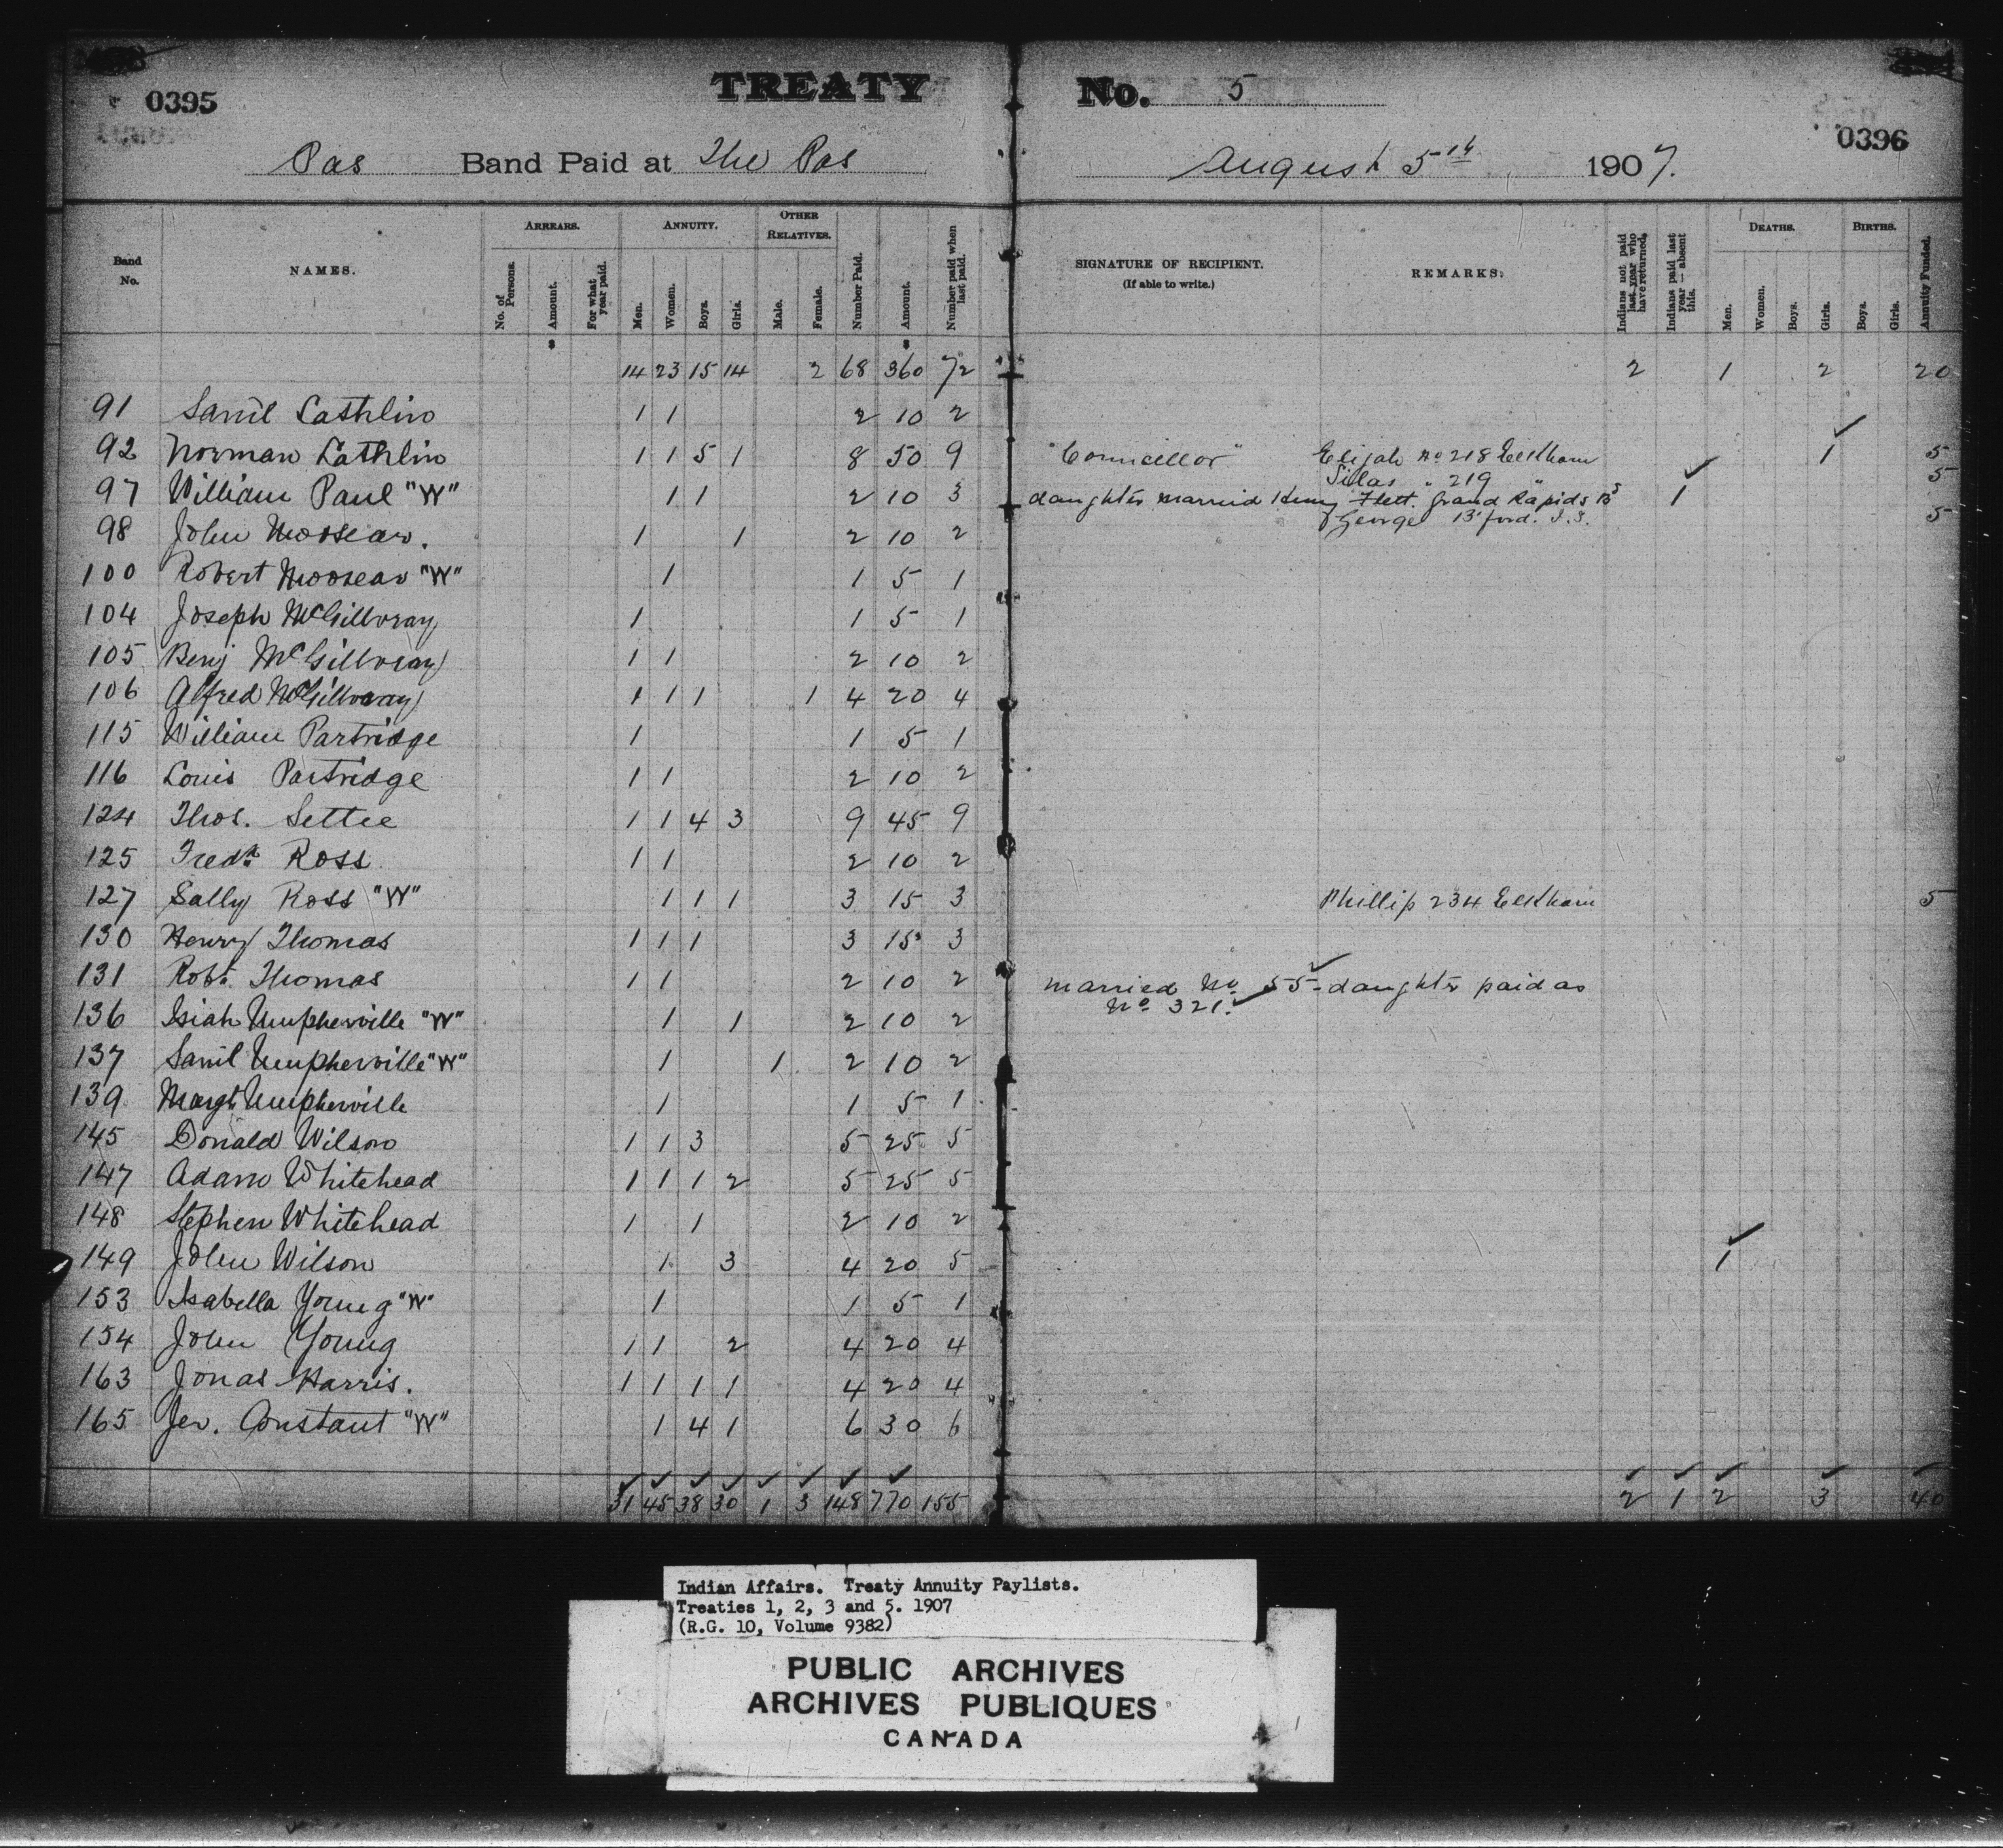 0395
TREATY No. 5
0396
Pas Band Paid at The Pas August 5th 1907.
Band No. NAMES. ARREARS. ANNUITY. OTHER RELATIVES. Number Paid. Amount. Number paid when last paid. SIGNATURE OF RECIPIENT. (If able to write.) REMARKS. Indians not paid last year who have returned. Indians paid last year—absent this. DEATHS. BIRTHS. Annuity Funded.
No. of Persons. Amount. For what year paid. Men. Women. Boys. Girls. Male. Female. Men. Women. Boys. Girls. Boys. Girls.
$ $
14 23 15 14 2 68 360 72 2 1 2 20
91 Saml Cathlin 1 1 2 10 2
92 Norman Cathlin 1 1 5 1 8 50 9 "Councillor" Elijah No 218 Elkhorn 1 5
Silas " 219 " 5
97 William Paul "W" 1 1 2 10 3 daughter married Henry Flett. Grand Rapids Bd 1
& George B'ford. I.S. 5
98 John Moosear. 1 1 2 10 2
100 Robert Moosear "W" 1 1 5 1
104 Joseph McGillvray 1 1 5 1
105 Benj McGillvray 1 1 2 10 2
106 Alfred McGillvray 1 1 1 1 4 20 4
115 William Partridge 1 1 5 1
116 Louis Partridge 1 1 2 10 2
124 Thos. Settee 1 1 4 3 9 45 9
125 Fredk Ross 1 1 2 10 2
127 Sally Ross "W" 1 1 1 3 15 3 Phillip 234 Elkhorn 5
130 Henry Thomas 1 1 1 3 15 3
131 Robt. Thomas 1 1 2 10 2 married No 55- daughter paid as
No 321.
136 Isiah Umpherville "W" 1 1 2 10 2
137 Saml Umpherville "W" 1 1 2 10 2
139 Margt Umpherville 1 1 5 1
145 Donald Wilson 1 1 3 5 25 5
147 Adam Whitehead 1 1 1 2 5 25 5
148 Stephen Whitehead 1 1 2 10 2
149 John Wilson 1 3 4 20 5 1
153 Isabella Young "W" 1 1 5 1
154 John Young 1 1 2 4 20 4
163 Jonas Harris. 1 1 1 1 4 20 4
165 Jer. Constant "W" 1 4 1 6 30 6
31 45 38 30 1 3 148 770 155 2 1 2 3 40
Indian Affairs. Treaty Annuity Paylists.
Treaties 1, 2, 3 and 5. 1907
(R.G. 10, Volume 9382)
PUBLIC ARCHIVES
ARCHIVES PUBLIQUES
CANADA